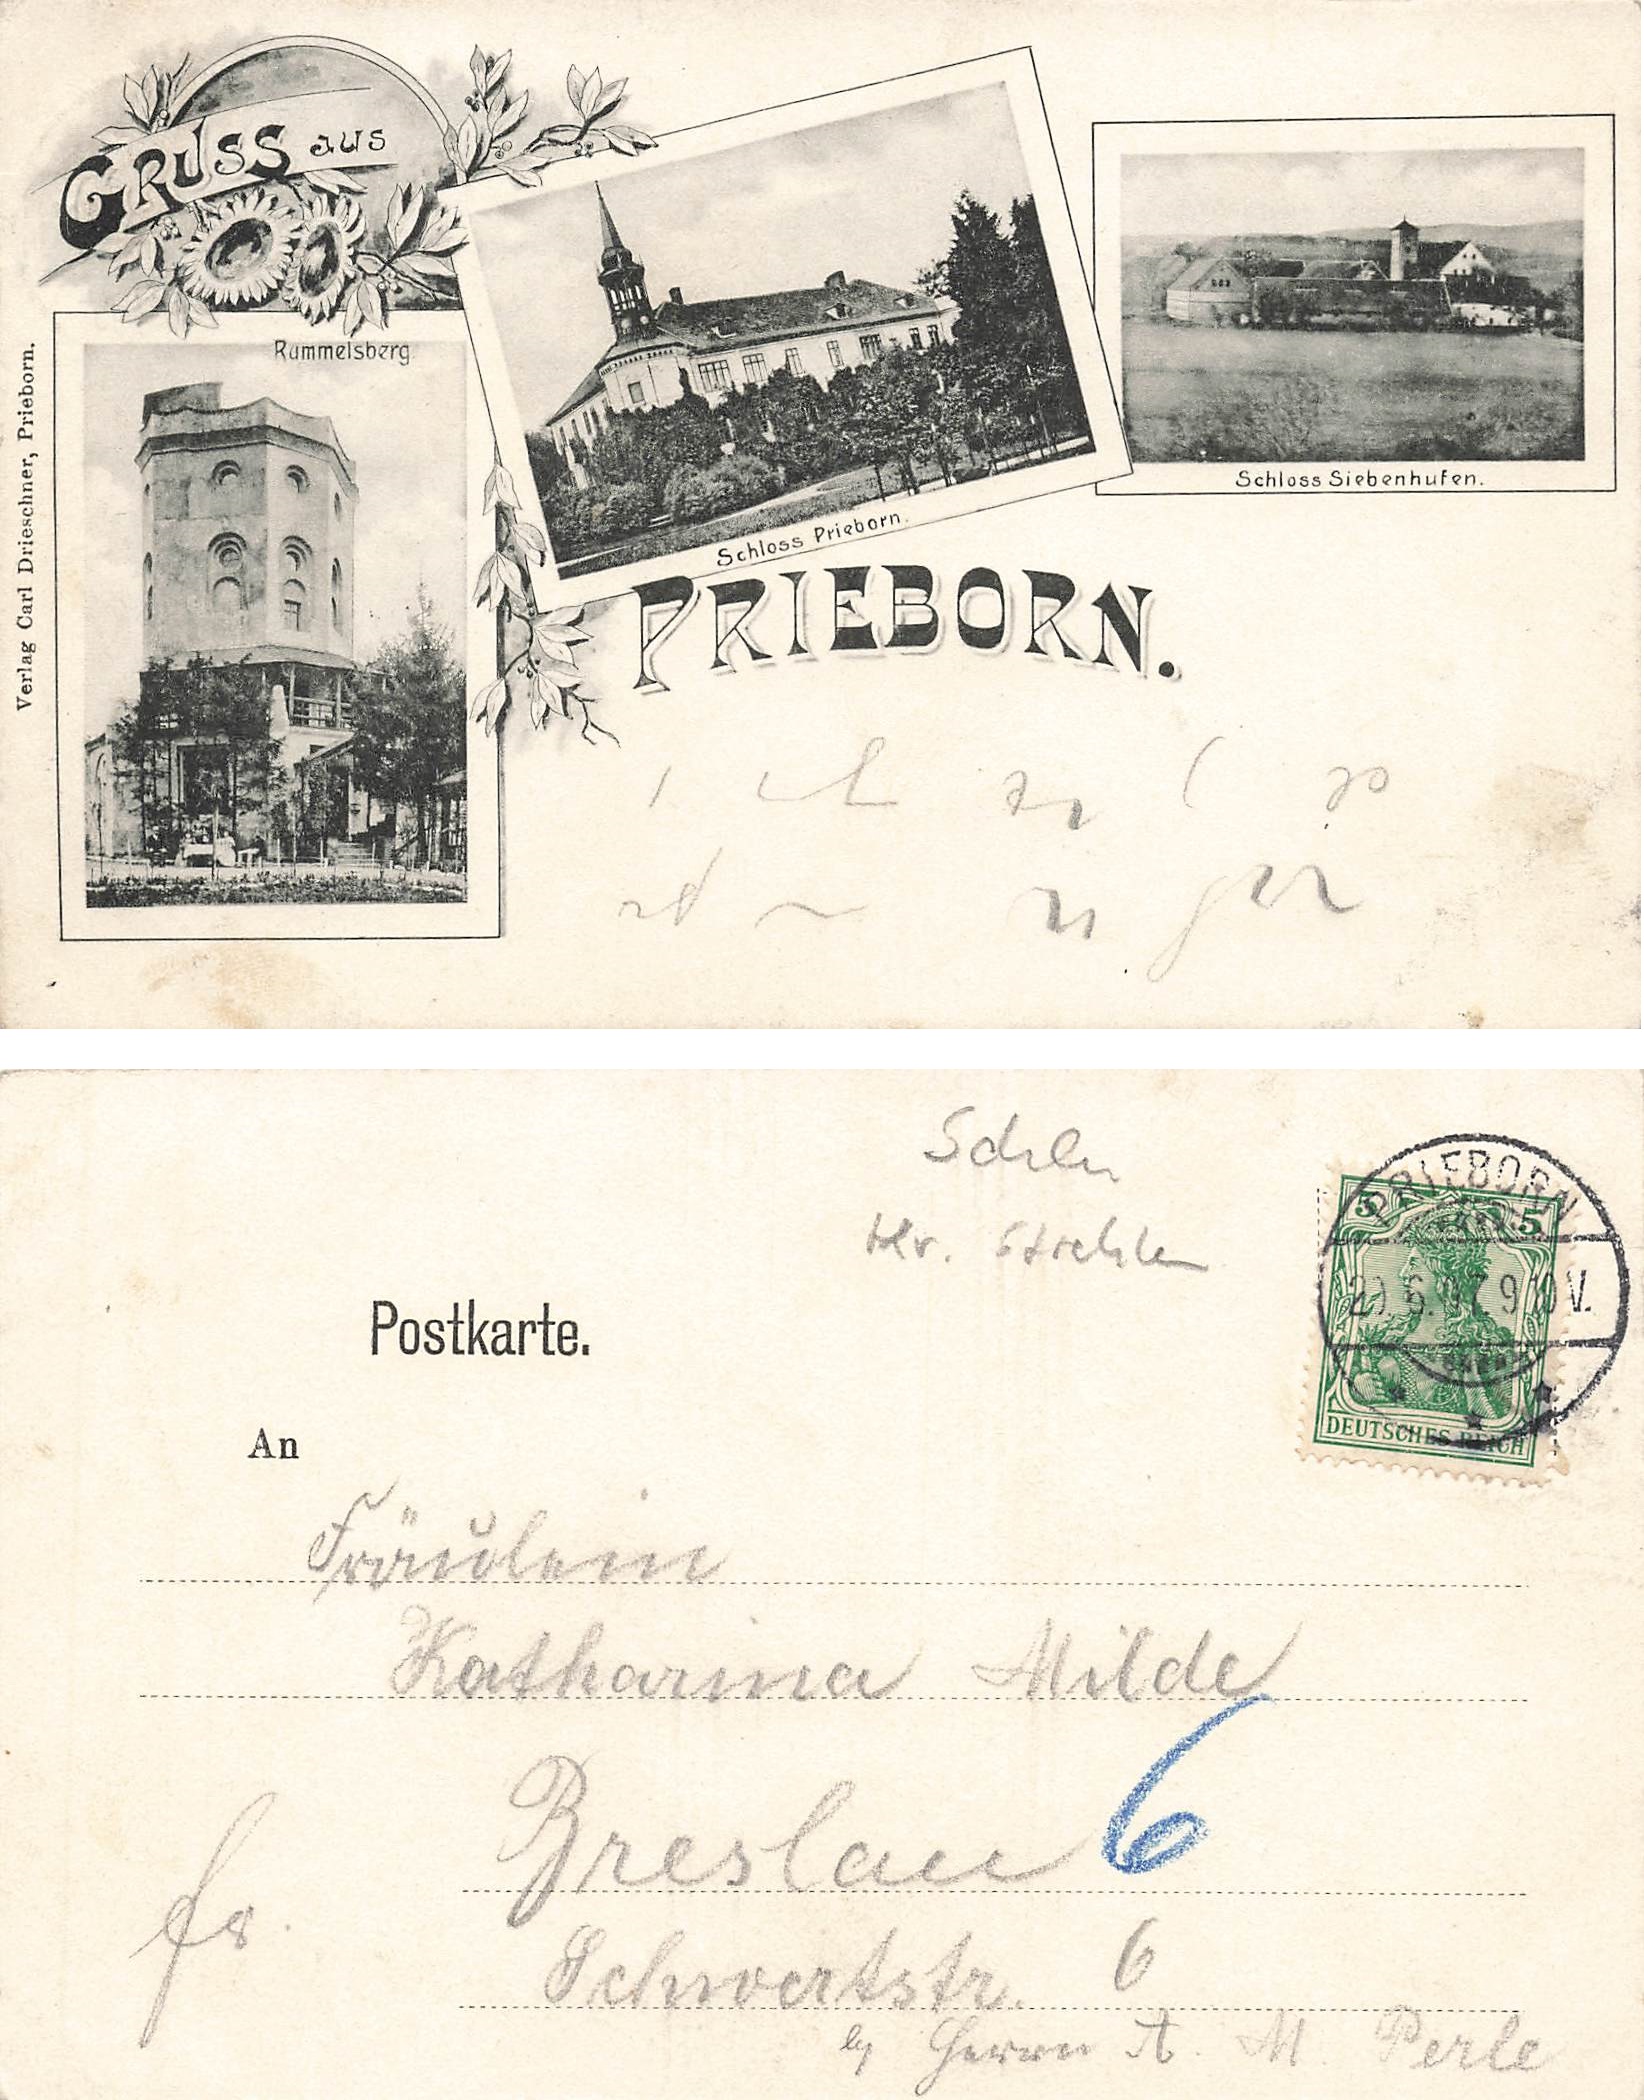 GRUSS aus
Rummelsberg
Schloss Prieborn.
Schloss Siebenhufen.
PRIEBORN.
Verlag Carl Drieschner, Prieborn.
Kr. Strehlen
Postkarte.
PRIEBORN
5 5
.6.07. 9 10 V.
DEUTSCHES REICH
An
Fräulein
Katharina Milde
Breslau 6
fr.
Schwertstr. 6
Herrn A. M. Perle